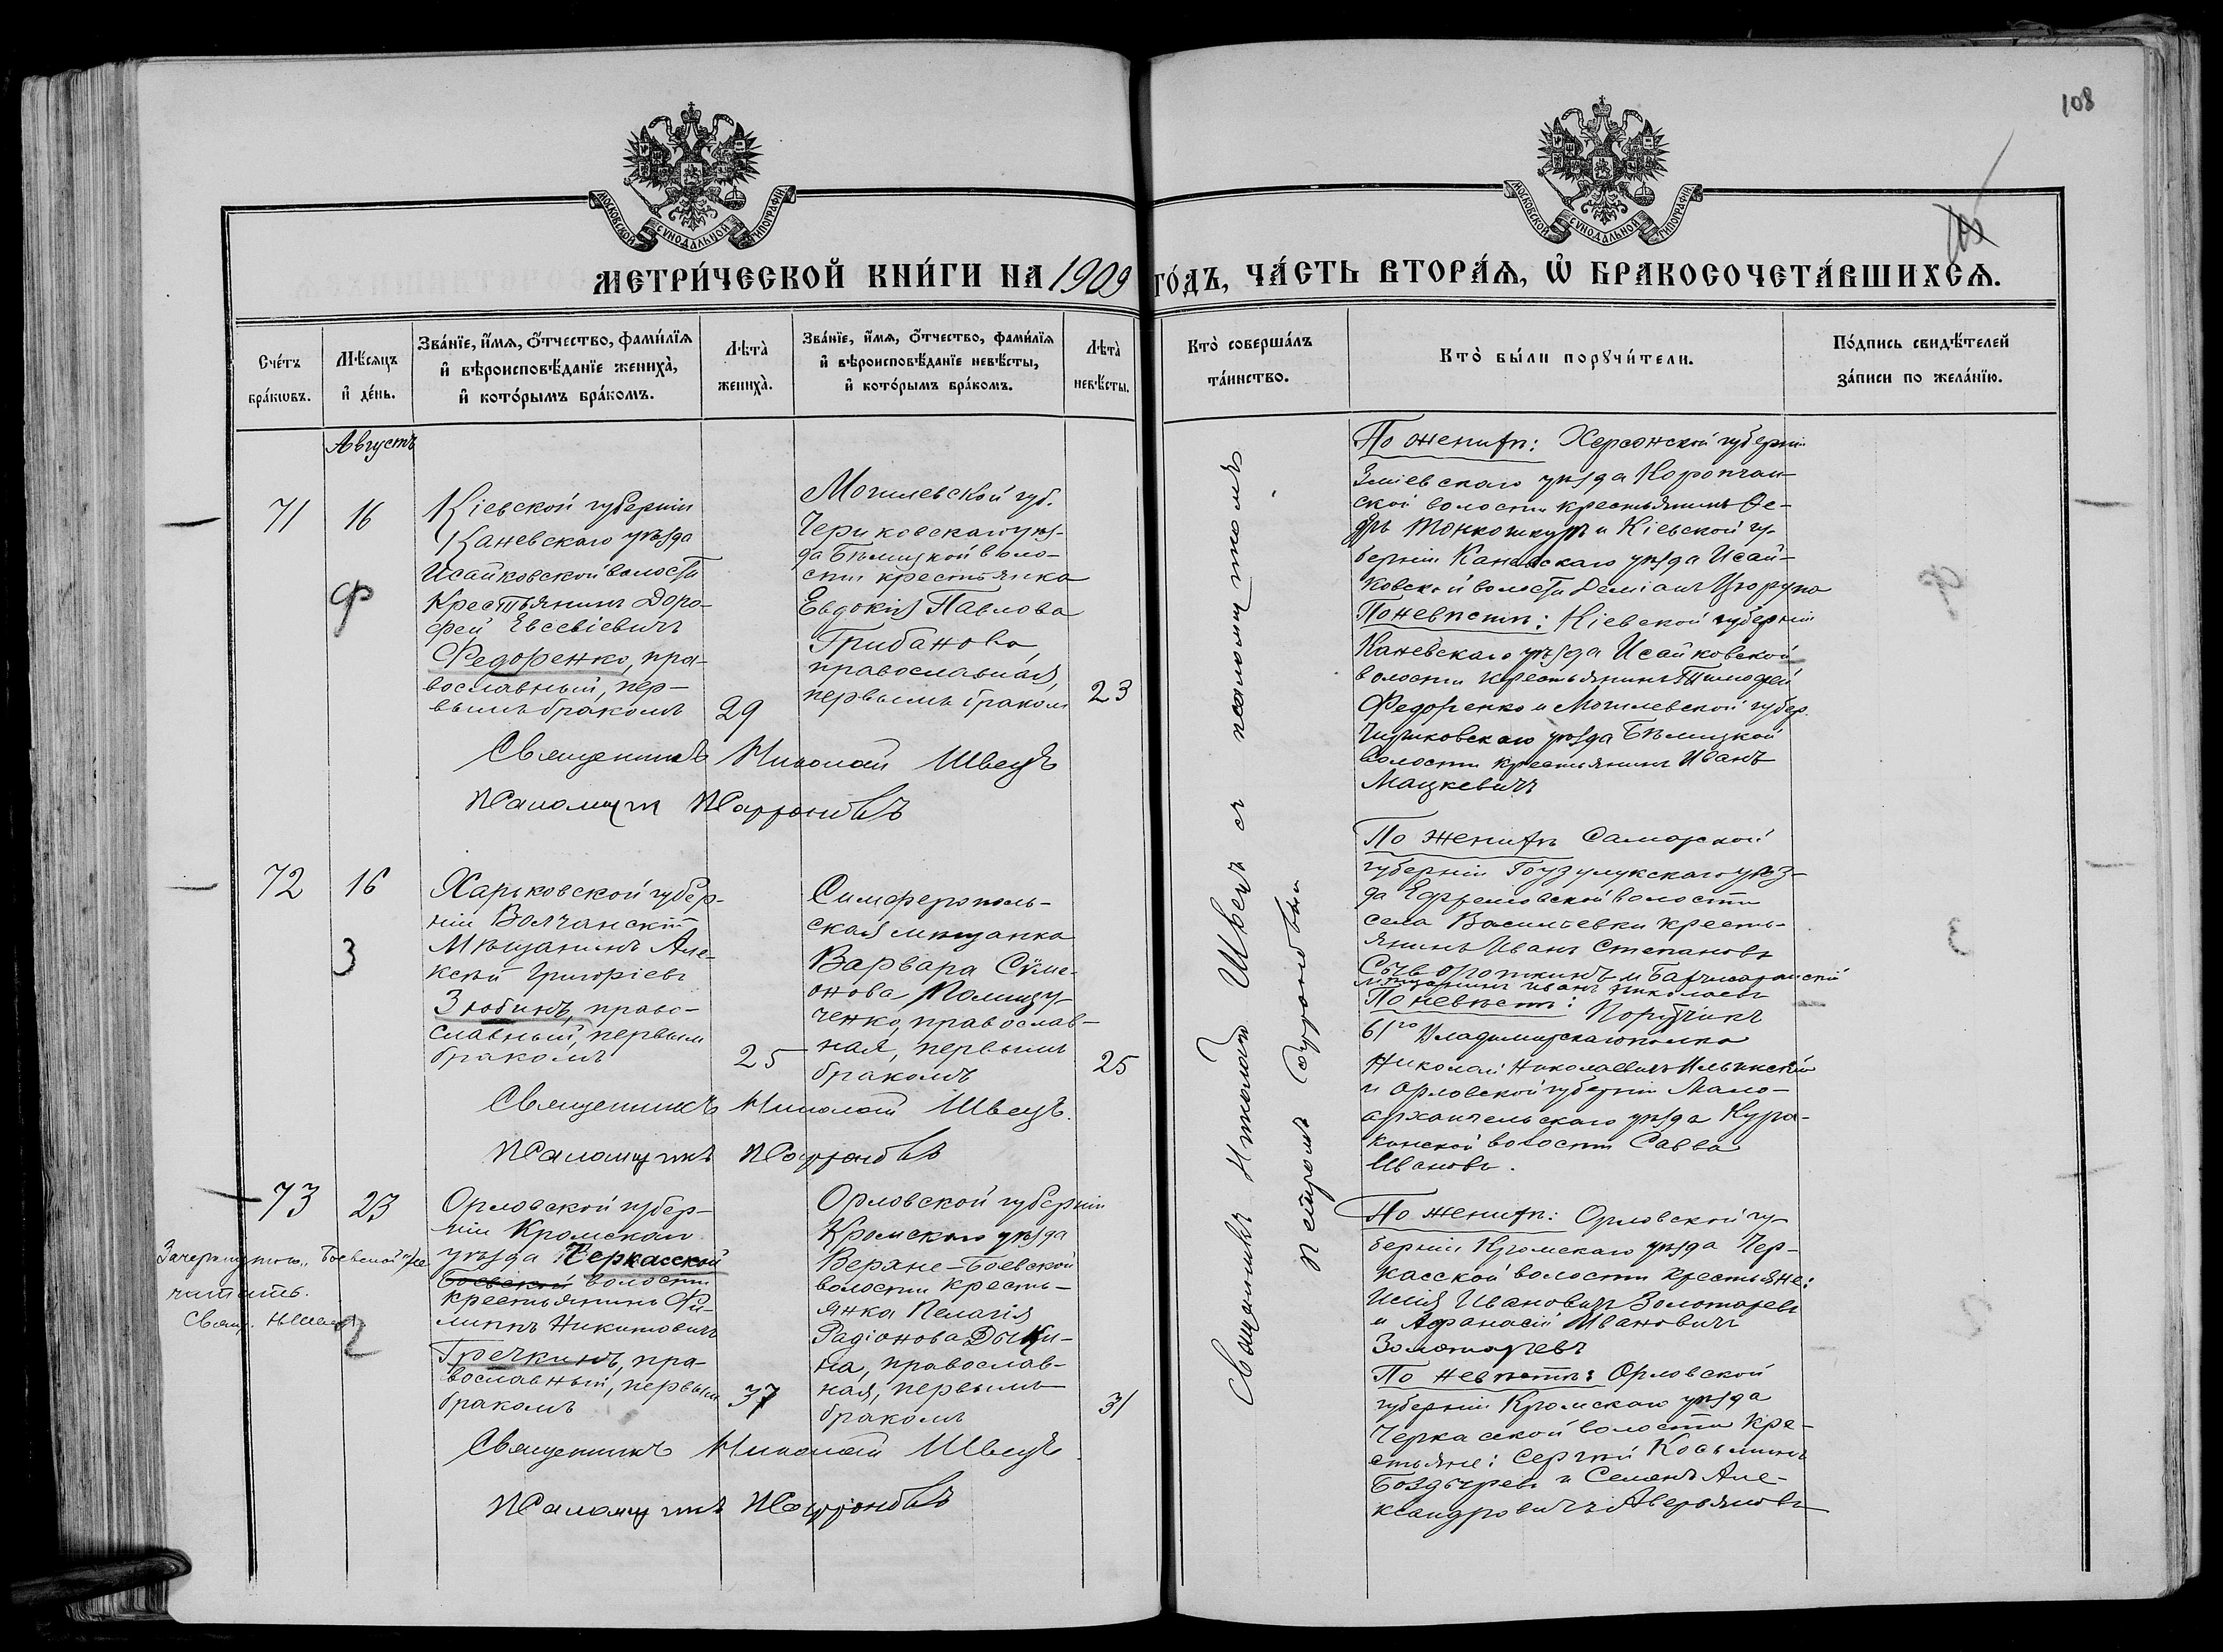 108
МОСКОВСКОЙ СѴНОДАЛЬНОЙ ТИПОГРАФІИ
МОСКОВСКОЙ СѴНОДАЛЬНОЙ ТИПОГРАФІИ
МЕТРИ́ЧЕСКОЙ КНИ́ГИ НА 1909 ГО́ДЪ, ЧА́СТЬ ВТОРА́Ѧ, Ѽ БРАКОСОЧЕТА́ВШИХСѦ.
Сче́тъ бра́кѡвъ.
Мѣ́сяцъ и де́нь.
Зва́нїе, и҆́мѧ, ѻ҆́тчество, фами́лїѧ
и҆ вѣроисповѣ́данїе жениха̀,
и҆ кото́рымъ бра́комъ.
Лѣта̀
жениха̀.
Зва́нїе, и҆́мѧ, ѻ҆́тчество, фами́лїѧ
и҆ вѣроисповѣ́данїе невѣ́сты,
и҆ кото́рымъ бра́комъ.
Лѣта̀
невѣ́сты.
Кто̀ соверша́лъ
та́инство.
Кто̀ бы́ли порꙋчи́тели.
По́дпись свидѣ́телей
за́писи по жела́нїю.
Августъ
71
16
Ф
Кіевской губерніи
Каневскаго уѣзда
Исайковской волости
Крестьянинъ Доро-
фей Евсевіевичъ
Федоренко, пра-
вославный, пер-
вымъ бракомъ
29
Могилевской губ.
Чериковскаго уѣз-
да Бѣлицкой воло-
сти крестьянка
Евдокія Павлова
Грибанова,
православная,
первымъ бракомъ
23
Священникъ Николай Швецъ
Псаломщик
По женихѣ: Херсонской губерніи
Зміевскаго уѣзда Коропчан-
ской волости крестьянинъ Фе-
дръ Тонкошкуръ и Кіевской гу-
берніи Каневскаго уѣзда Исай-
ковской волости Деміанъ Цюрупа
По невѣстѣ: Кіевской губерніи
Каневскаго уѣзда Исайковской
волости крестьянинъ Тимофей
Федоренко и Могилевской губер.
Чериковскаго уѣзда Бѣлицкой
волости крестьянинъ Иванъ
Мацкевичъ
72
16
З
Харьковской губер-
ніи Волчанскій
Мѣщанинъ Але-
ксѣй Григоріевъ
Зюбинъ, право-
славный, первым
бракомъ
25
Симферополь-
ская мѣщанка
Варвара Симе-
онова Полищу-
ченко, православ-
ная, первымъ
бракомъ
25
Священникъ Николай Швецъ.
Псаломщикъ
По женихѣ Самарской
губерніи Бузулукскаго уѣз-
да Ефремовской волости
села Васильевки кресть-
янинъ Иванъ Степановъ
Сывороткинъ и Бахчисарайскій
мѣщанинъ Иванъ Николаевъ
По невѣстѣ: Поручикъ
61го Владимірскаго полка
Николай Николаевичъ Ильинскій
и Орловской губерніи Мало-
архангельскаго уѣзда Кура-
кинской волости Савва
Ивановъ.
73
23
Г
Орловской губер-
ніи Кромскаго
уѣзда Черкасской
Боевской волости
крестьянинъ Фи-
липпъ Никитовичъ
Гречкинъ, пра-
вославный, первым
бракомъ
37
Орловской губерніи
Кромскаго уѣзда
Верхне-Боевской
волости кресть-
янка Пелагія
Радіонова Дыки-
на, православ-
ная, первымъ
бракомъ
31
Зачеркнутое „Боевской“ не
читать.
Свящ. Н. Швецъ
Священникъ Николай Швецъ.
Псаломщикъ
По женихѣ: Орловской гу-
берніи Кромскаго уѣзда Чер-
касской волости крестьяне:
Илія Ивановичъ Золотаревъ
и Афанасій Ивановичъ
Золотаревъ
По невѣстѣ: Орловской
губерніи Кромскаго уѣзда
Черкасской волости кре-
стьяне: Сергѣй Косьминъ
Боздыревъ и Семенъ Але-
ксандровичъ Аверьяновъ
Священникъ Николай Швецъ съ псаломщикомъ
Петромъ
Ф
З